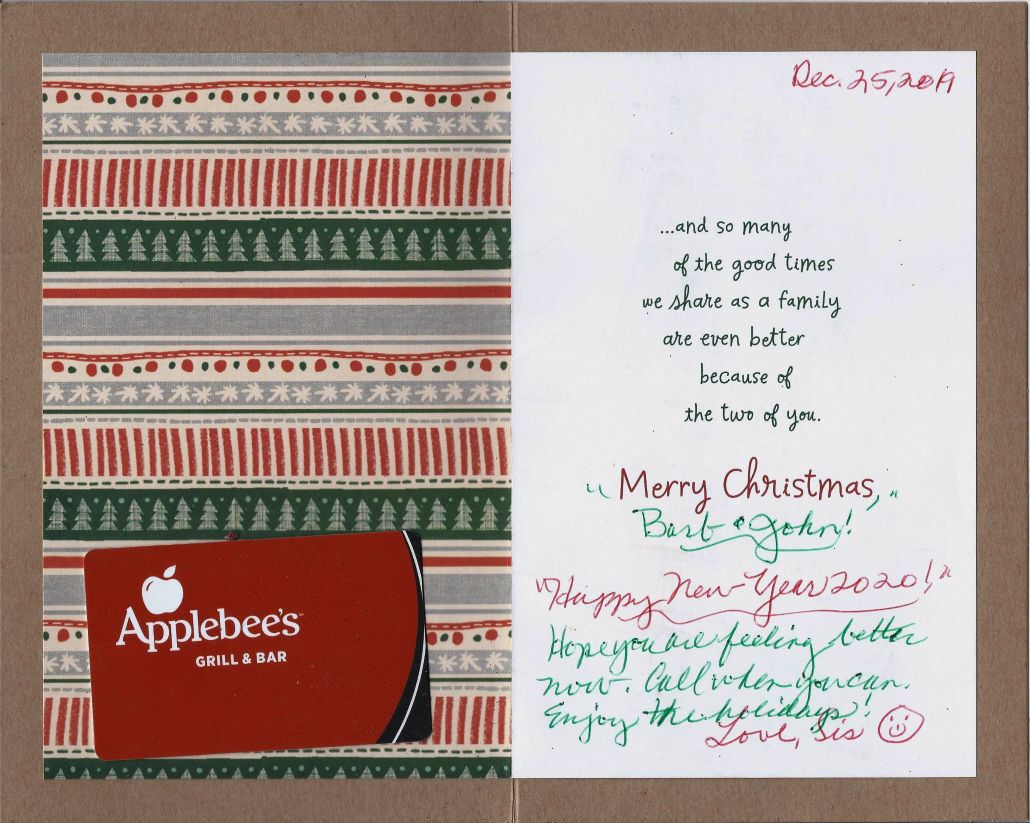 Dec. 25, 2019
...and so many
of the good times
we share as a family
are even better
because of
the two of you.
"Merry Christmas,"
Barb & John!
"Happy New Year 2020!,"
Hope you are feeling better
now. Call when you can.
Enjoy the holidays!
Love, Sis
Applebee's
GRILL & BAR